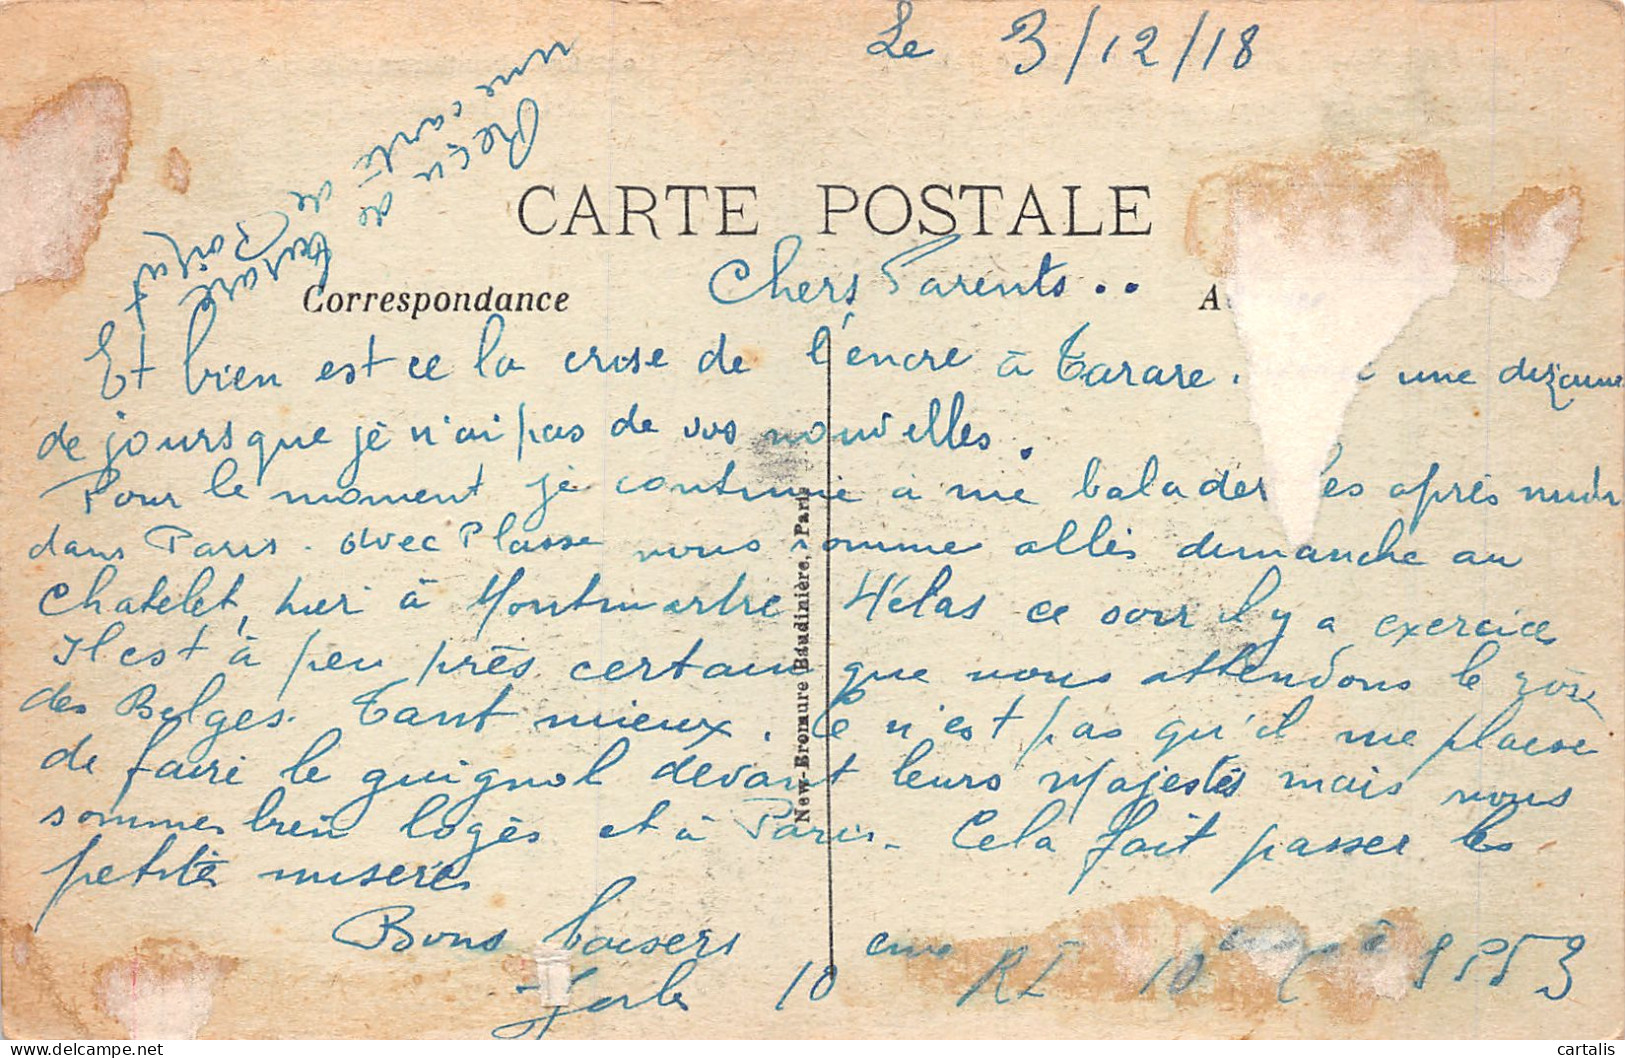 Le 3/12/18
Reçu de Tarare
une carte de Poirut
CARTE POSTALE
Correspondance
Chers Parents..
Et bien est ce la crise de l'encre à Tarare. une dizaine
de jours que je n'ai pas de vos nouvelles.
Pour le moment je continue à me balader les après midi
dans Paris. avec Plasse nous sommes allés dimanche au
Chatelet, hier à Montmartre Hélas ce soir il y a exercice
Il est à peu près certain que nous attendons le roi
des Belges. Tant mieux. Ce n'est pas qu'il me plaise
de faire le guignol devant leurs Majestés mais nous
sommes bien logés et à Paris. Cela fait passer les
petites misères
Bons baisers
10 eme RI 10 SP 53
New-Bromure Baudinière, Paris
cartalis
delcampe.net